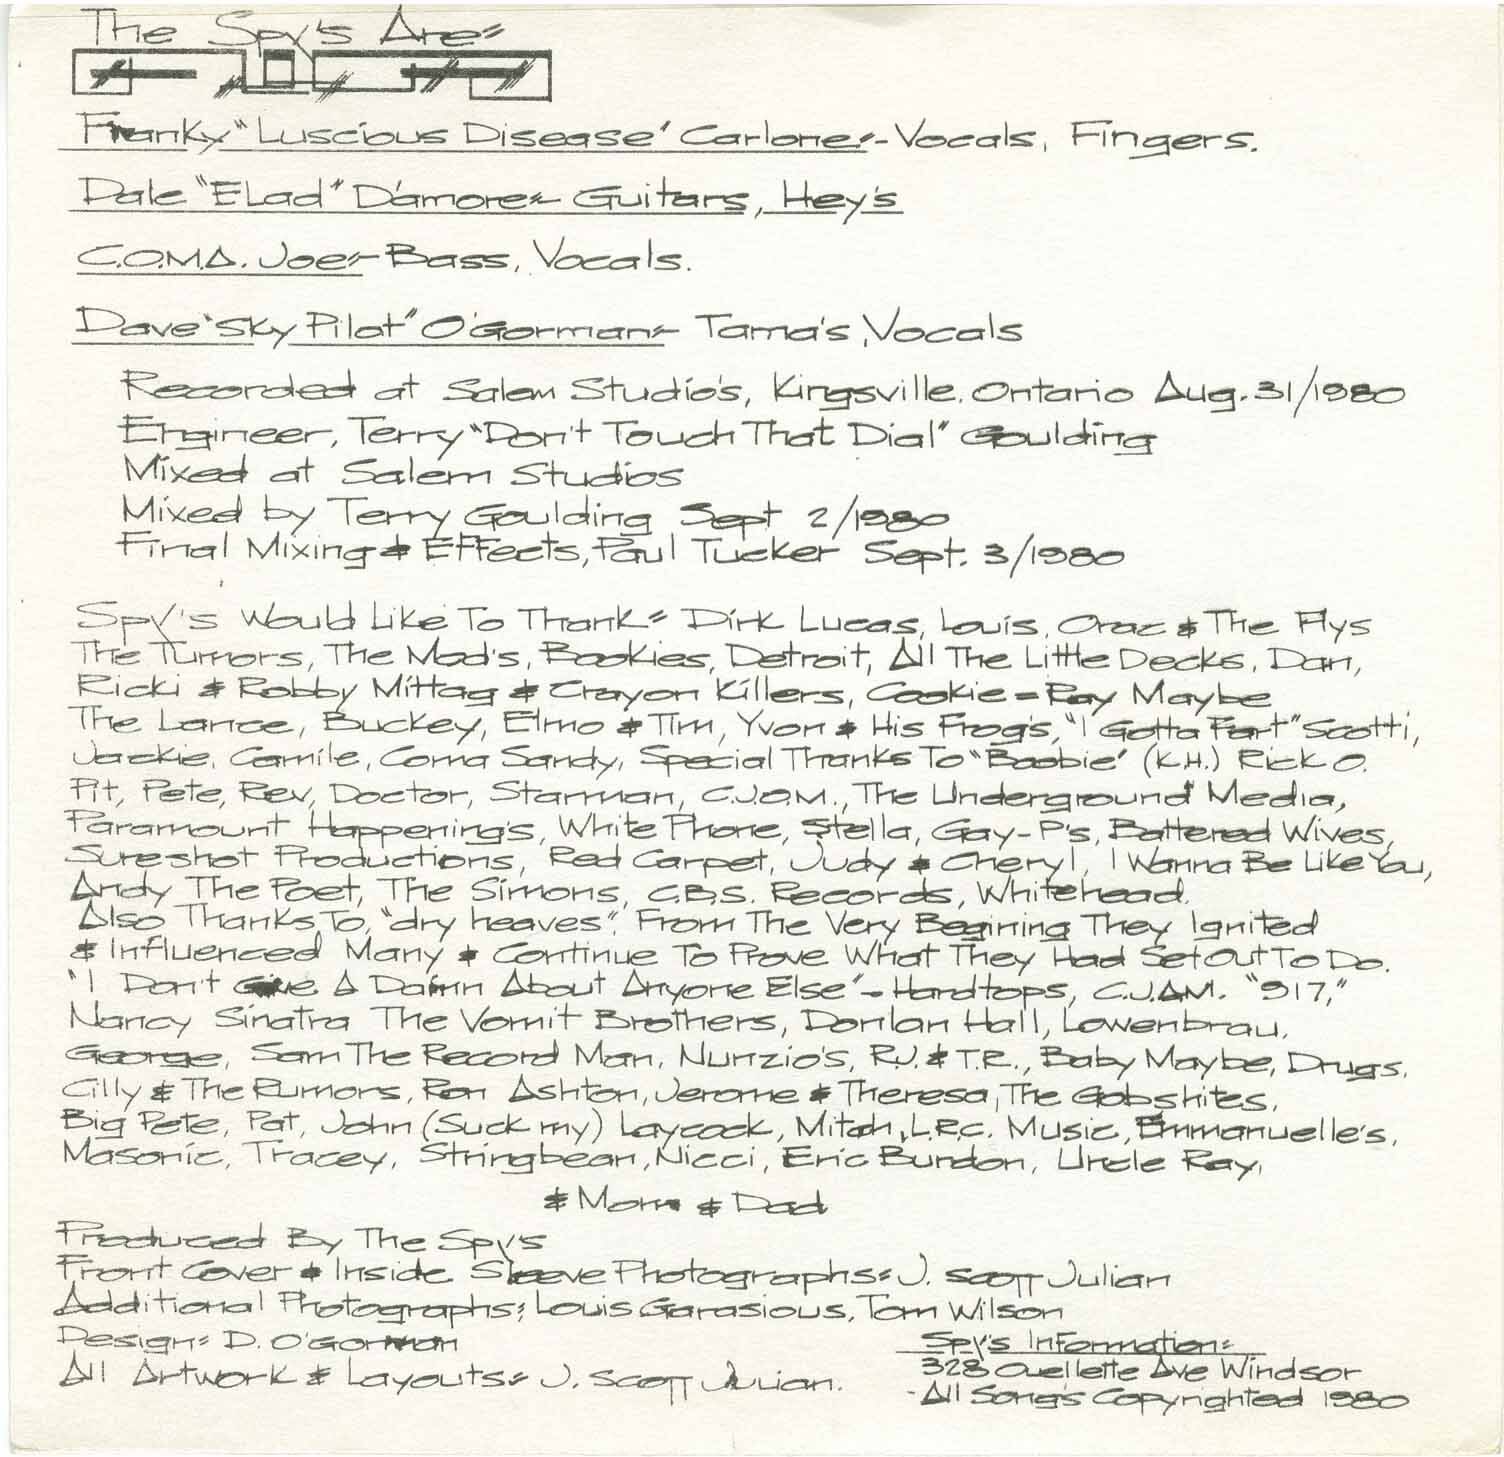 The Spy's Are=
Franky "Luscious Disease' Carlone=- Vocals, Fingers.
Dale "ELad" D'amore=- Guitars, Hey's
C.O.M.A. Joe=- Bass, Vocals.
Dave "Sky Pilot" O'Gorman=- Tama's, Vocals
Recorded at Salem Studio's, Kingsville, Ontario Aug. 31/1980
Engineer, Terry "Don't Touch That Dial" Goulding
Mixed at Salem Studios
Mixed by Terry Goulding Sept 2/1980
Final Mixing & Effects, Paul Tucker Sept. 3/1980
Spy's Would Like To Thank= Dirk Lucas, Louis, Orac & The Flys
The Tumors, The Mod's, Bookies, Detroit, All The Little Decks, Dan,
Ricki & Robby Mittag & Crayon Killers, Cookie = Ray Maybe
The Lance, Buckey, Elmo & Tim, Yvon & His Frog's, "I Gotta Fart" Scotti,
Jackie, Camile, Coma Sandy, Special Thanks To "Boobie' (K.H.) Rick O.
Pit, Pete, Rev, Doctor, Starman, C.J.O.M., The Underground Media,
Paramount Happening's, White Phone, Stella, Gay-P's, Battered Wives,
Sureshot Productions, Red Carpet, Judy & Cheryl, I Wanna Be Like You,
Andy The Poet, The Simons, C.B.S. Records, Whitehead.
Also Thanks To, "dry heaves". From The Very Begining They Ignited
& Influenced Many & Continue To Prove What They Had Set Out To Do.
"I Don't Give A Damn About Anyone Else' - Hardtops, C.J.A.M. "917,"
Nancy Sinatra The Vomit Brothers, Donlan Hall, Lowenbrau,
George, Sam The Record Man, Nunzio's, R.J. & T.R., Baby Maybe, Drugs,
Cilly & The Rumors, Ron Ashton, Jerome & Theresa, The Gobshites,
Big Pete, Pat, John (Suck my) Laycock, Mitch, L.R.C. Music, Emmanuelle's,
Masonic, Tracey, Stringbean, Nicci, Eric Burdon, Uncle Ray,
& Mom & Dad
Produced By The Spy's
Front Cover & Inside Sleeve Photographs= J. Scott Julian
Additional Photographs; Louis Garasious, Tom Wilson
Design= D. O'Gorman
All Artwork & Layouts= J. Scott Julian.
Spy's Information=
328 Ouellette Ave Windsor
-All Song's Copyrighted 1980